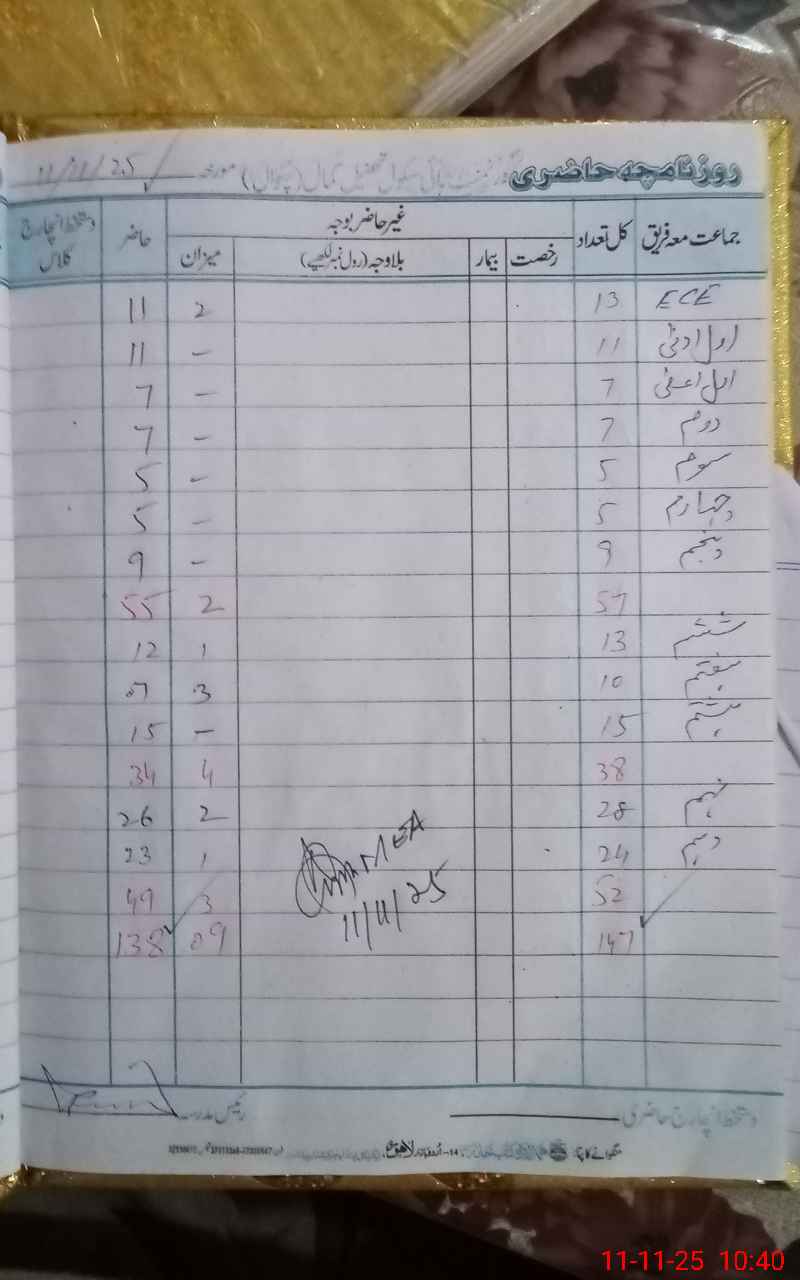 روزنامچہ حاضری گورنمنٹ ہائی سکول تحصیل (چکوال) مورخہ 11/11/25
جماعت معہ فریق کل تعداد غیر حاضر بوجہ حاضر دستخط انچارج کلاس
رخصت بیمار بلاوجہ (رول نمبر لکھیے) میزان
ECE 13 2 11
اول ادنیٰ 11 - 11
اول اعلیٰ 7 - 7
دوم 7 - 7
سوم 5 - 5
چہارم 5 - 5
پنجم 9 - 9
57 2 55
ششم 13 1 12
ہفتم 10 3 07
ہشتم 15 - 15
38 4 34
نہم 28 2 26
دہم 24 1 23
52 3 49
147 09 138
MEA
11/11/25
دستخط انچارج حاضری رئیس مدرسہ
منگوانے کا پتہ: 14-اردو بازار لاہور
11-11-25 10:40